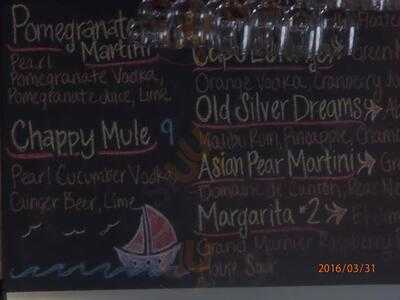 Pomegranate
Martini
Pearl
Pomegranate Vodka,
Pomegranate Juice, Lime
Chappy Mule 9
Pearl Cucumber Vodka
Ginger Beer, Lime
Cape
Orange Vodka, Cranberry
Old Silver Dreams
Malibu Rum, Pineapple,
Asian Pear Martini
Domaine de Canton, Pear
Margarita #2
Grand Marnier Raspberry
House Sour
2016/03/31